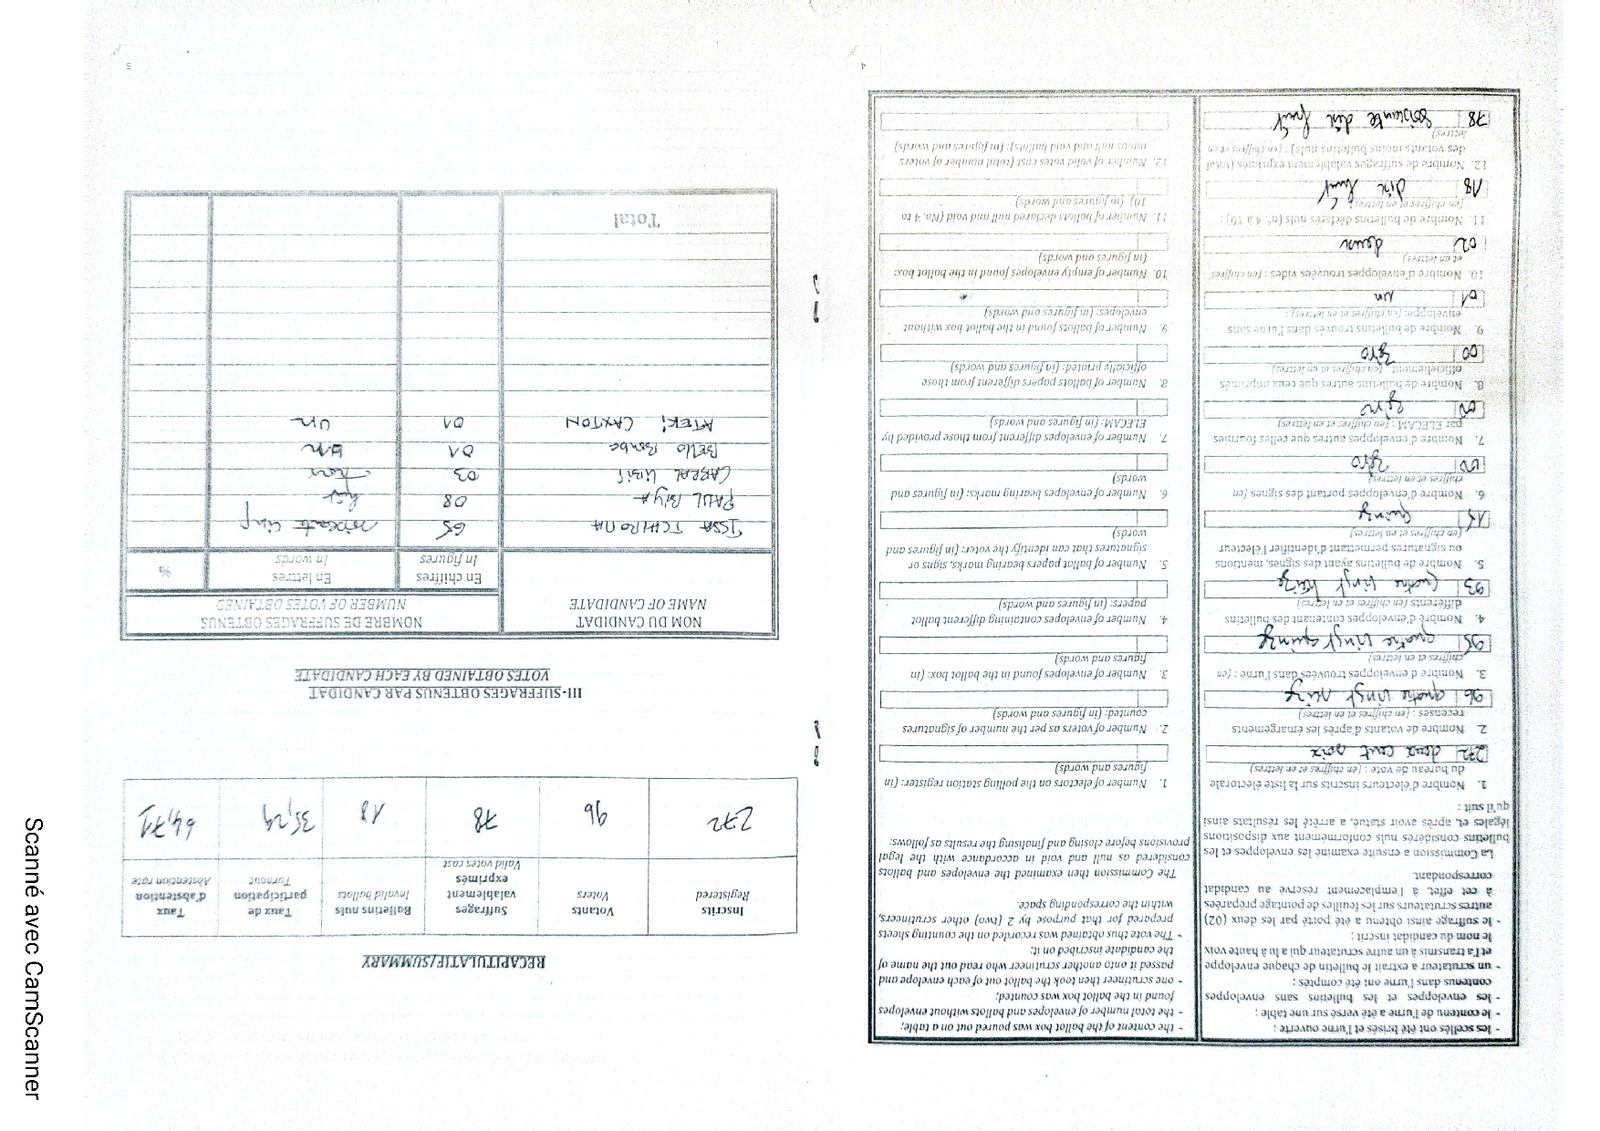 - les scellés ont été brisés et l'urne ouverte ;
- le contenu de l'urne a été versé sur une table ;
- les enveloppes et les bulletins sans enveloppes
contenus dans l'urne ont été comptés ;
- un scrutateur a extrait le bulletin de chaque enveloppe
et l'a transmis à un autre scrutateur qui a lu à haute voix
le nom du candidat inscrit ;
- le suffrage ainsi obtenu a été porté par les deux (02)
autres scrutateurs sur les feuilles de pointage préparées
à cet effet, à l'emplacement réservé au candidat
correspondant.
La Commission a ensuite examiné les enveloppes et les
bulletins considérés nuls conformément aux dispositions
légales et, après avoir statué, a arrêté les résultats ainsi
qu'il suit :
1. Nombre d'électeurs inscrits sur la liste électorale
du bureau de vote : (en chiffres et en lettres)
272 deux cent soix
2. Nombre de votants d'après les émargements
recensés : (en chiffres et en lettres)
96 quatre vingt seize
3. Nombre d'enveloppes trouvées dans l'urne : (en
chiffres et en lettres)
95 quatre vingt quinze
4. Nombre d'enveloppes contenant des bulletins
différents (en chiffres et en lettres)
93 Quatre vingt treize
5. Nombre de bulletins ayant des signes, mentions
ou signatures permettant d'identifier l'électeur
(en chiffres et en lettres)
15 quinze
6. Nombre d'enveloppes portant des signes (en
chiffres et en lettres)
00 zéro
7. Nombre d'enveloppes autres que celles fournies
par ELECAM : (en chiffres et en lettres)
00 zéro
8. Nombre de bulletins autres que ceux imprimés
officiellement : (en chiffres et en lettres)
00 zéro
9. Nombre de bulletins trouvés dans l'urne sans
enveloppe: (en chiffres et en lettres) :
01 un
10. Nombre d'enveloppes trouvées vides : (en chiffres
et en lettres)
02 deux
11. Nombre de bulletins déclarés nuls (n°. 4 à 10) :
(en chiffres et en lettres)
18 dix huit
12. Nombre de suffrages valablement exprimés (total
des votants moins bulletins nuls) : (en chiffres et en
lettres)
78 soixante dix huit
- the content of the ballot box was poured out on a table;
- the total number of envelopes and ballots without envelopes
found in the ballot box was counted;
- one scrutineer then took the ballot out of each envelope and
passed it onto another scrutineer who read out the name of
the candidate inscribed on it;
- The vote thus obtained was recorded on the counting sheets
prepared for that purpose by 2 (two) other scrutineers,
within the corresponding space.
The Commission then examined the envelopes and ballots
considered as null and void in accordance with the legal
provisions before closing and finalising the results as follows:
1. Number of electors on the polling station register: (in
figures and words)
2. Number of voters as per the number of signatures
counted: (in figures and words)
3. Number of envelopes found in the ballot box: (in
figures and words)
4. Number of envelopes containing different ballot
papers: (in figures and words)
5. Number of ballot papers bearing marks, signs or
signatures that can identify the voter: (in figures and
words
6. Number of envelopes bearing marks: (in figures and
words)
7. Number of envelopes different from those provided by
ELECAM: (in figures and words)
8. Number of ballots papers different from those
officially printed: (in figures and words)
9. Number of ballots found in the ballot box without
envelopes: (in figures and words)
10. Number of empty envelopes found in the ballot box:
(in figures and words)
11. Number of ballots declared null and void (No. 4 to
10) (in figures and words)
12. Number of valid votes cast (total number of voters
minus null and void ballots): (in figures and words)
4
RECAPITULATIF/SUMMARY
Inscrits Registered
Votants Voters
Suffrages valablement exprimés Valid votes cast
Bulletins nuls Invalid ballots
Taux de participation Turnout
Taux d'abstention Abstention rate
272 96 78 18 35,29 64,71
III- SUFFRAGES OBTENUS PAR CANDIDAT
VOTES OBTAINED BY EACH CANDIDATE
NOM DU CANDIDAT NOMBRE DE SUFFRAGES OBTENUS
NAME OF CANDIDATE NUMBER OF VOTES OBTAINED
En chiffres En lettres %
In figures In words
ISSA TCHIROMA 65 soixante cinq
PAUL BIYA 08 huit
CABRAL LIBII 03 trois
BELLO Bouba 01 un
ATEKI CAXTON 01 un
Total
5
Scanné avec CamScanner